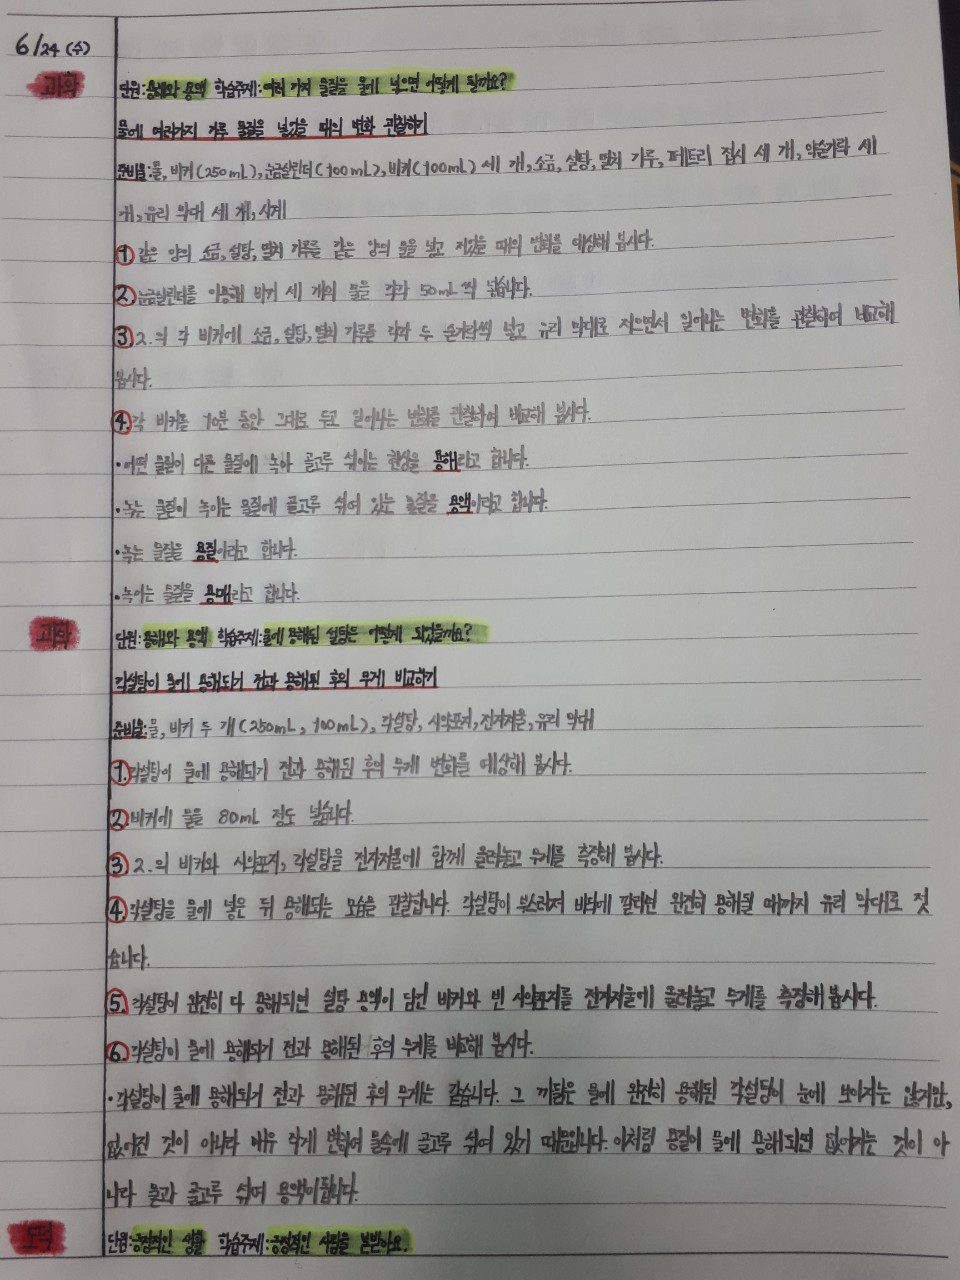 6/24 (수)
과학
단원:용해와 용액 학습주제:여러 가지 물질을 물에 넣으면 어떻게 될까요?
물에 여러가지 가루 물질을 넣었을 때의 변화 관찰하기
준비물:물, 비커(250mL), 눈금실린더(100mL), 비커(100mL) 세 개, 소금, 설탕, 멸치 가루, 페트리 접시 세 개, 약숟가락 세
개, 유리 막대 세 개, 시계
1. 같은 양의 소금, 설탕, 멸치 가루를 같은 양의 물을 넣고 저었을 때의 변화를 예상해 봅시다.
2. 눈금실린더를 이용해 비커 세 개의 물을 각각 50mL씩 넣습니다.
3. 2.의 각 비커에 소금, 설탕, 멸치 가루를 각각 두 숟가락씩 넣고 유리 막대로 저으면서 일어나는 변화를 관찰하여 비교해
봅시다.
4. 각 비커를 10분 동안 그대로 두고 일어나는 변화를 관찰하여 비교해 봅시다.
·어떤 물질이 다른 물질에 녹아 골고루 섞이는 현상을 용해라고 합니다.
·녹는 물질이 녹이는 물질에 골고루 섞여 있는 물질을 용액이라고 합니다.
·녹는 물질을 용질이라고 합니다.
·녹이는 물질을 용매라고 합니다.
과학
단원:용해와 용액 학습주제:물에 용해된 설탕은 어떻게 되었을까요?
각설탕이 물에 용해되기 전과 용해된 후의 무게 비교하기
준비물:물, 비커 두 개(250mL, 100mL), 각설탕, 시약포지, 전자저울, 유리 막대
1. 각설탕이 물에 용해되기 전과 용해된 후의 무게 변화를 예상해 봅시다.
2. 비커에 물을 80mL 정도 넣습니다.
3. 2.의 비커와 시약포지, 각설탕을 전자저울에 함께 올려놓고 무게를 측정해 봅시다.
4. 각설탕을 물에 넣은 뒤 용해되는 모습을 관찰합니다. 각설탕이 부스러져 바닥에 깔리면 완전히 용해될 때까지 유리 막대로 젓
습니다.
5. 각설탕이 완전히 다 용해되면 설탕 용액이 담긴 비커와 빈 시약포지를 전자저울에 올려놓고 무게를 측정해 봅시다.
6. 각설탕이 물에 용해되기 전과 용해된 후의 무게를 비교해 봅시다.
·각설탕이 물에 용해되기 전과 용해된 후의 무게는 같습니다. 그 까닭은 물에 완전히 용해된 각설탕이 눈에 보이지는 않지만,
없어진 것이 아니라 매우 작게 변하여 물속에 골고루 섞여 있기 때문입니다. 이처럼 용질이 물에 용해되면 없어지는 것이 아
니라 물과 골고루 섞여 용액이 됩니다.
도덕
단원:긍정적인 생활 학습주제:긍정적인 사람을 본받아요.